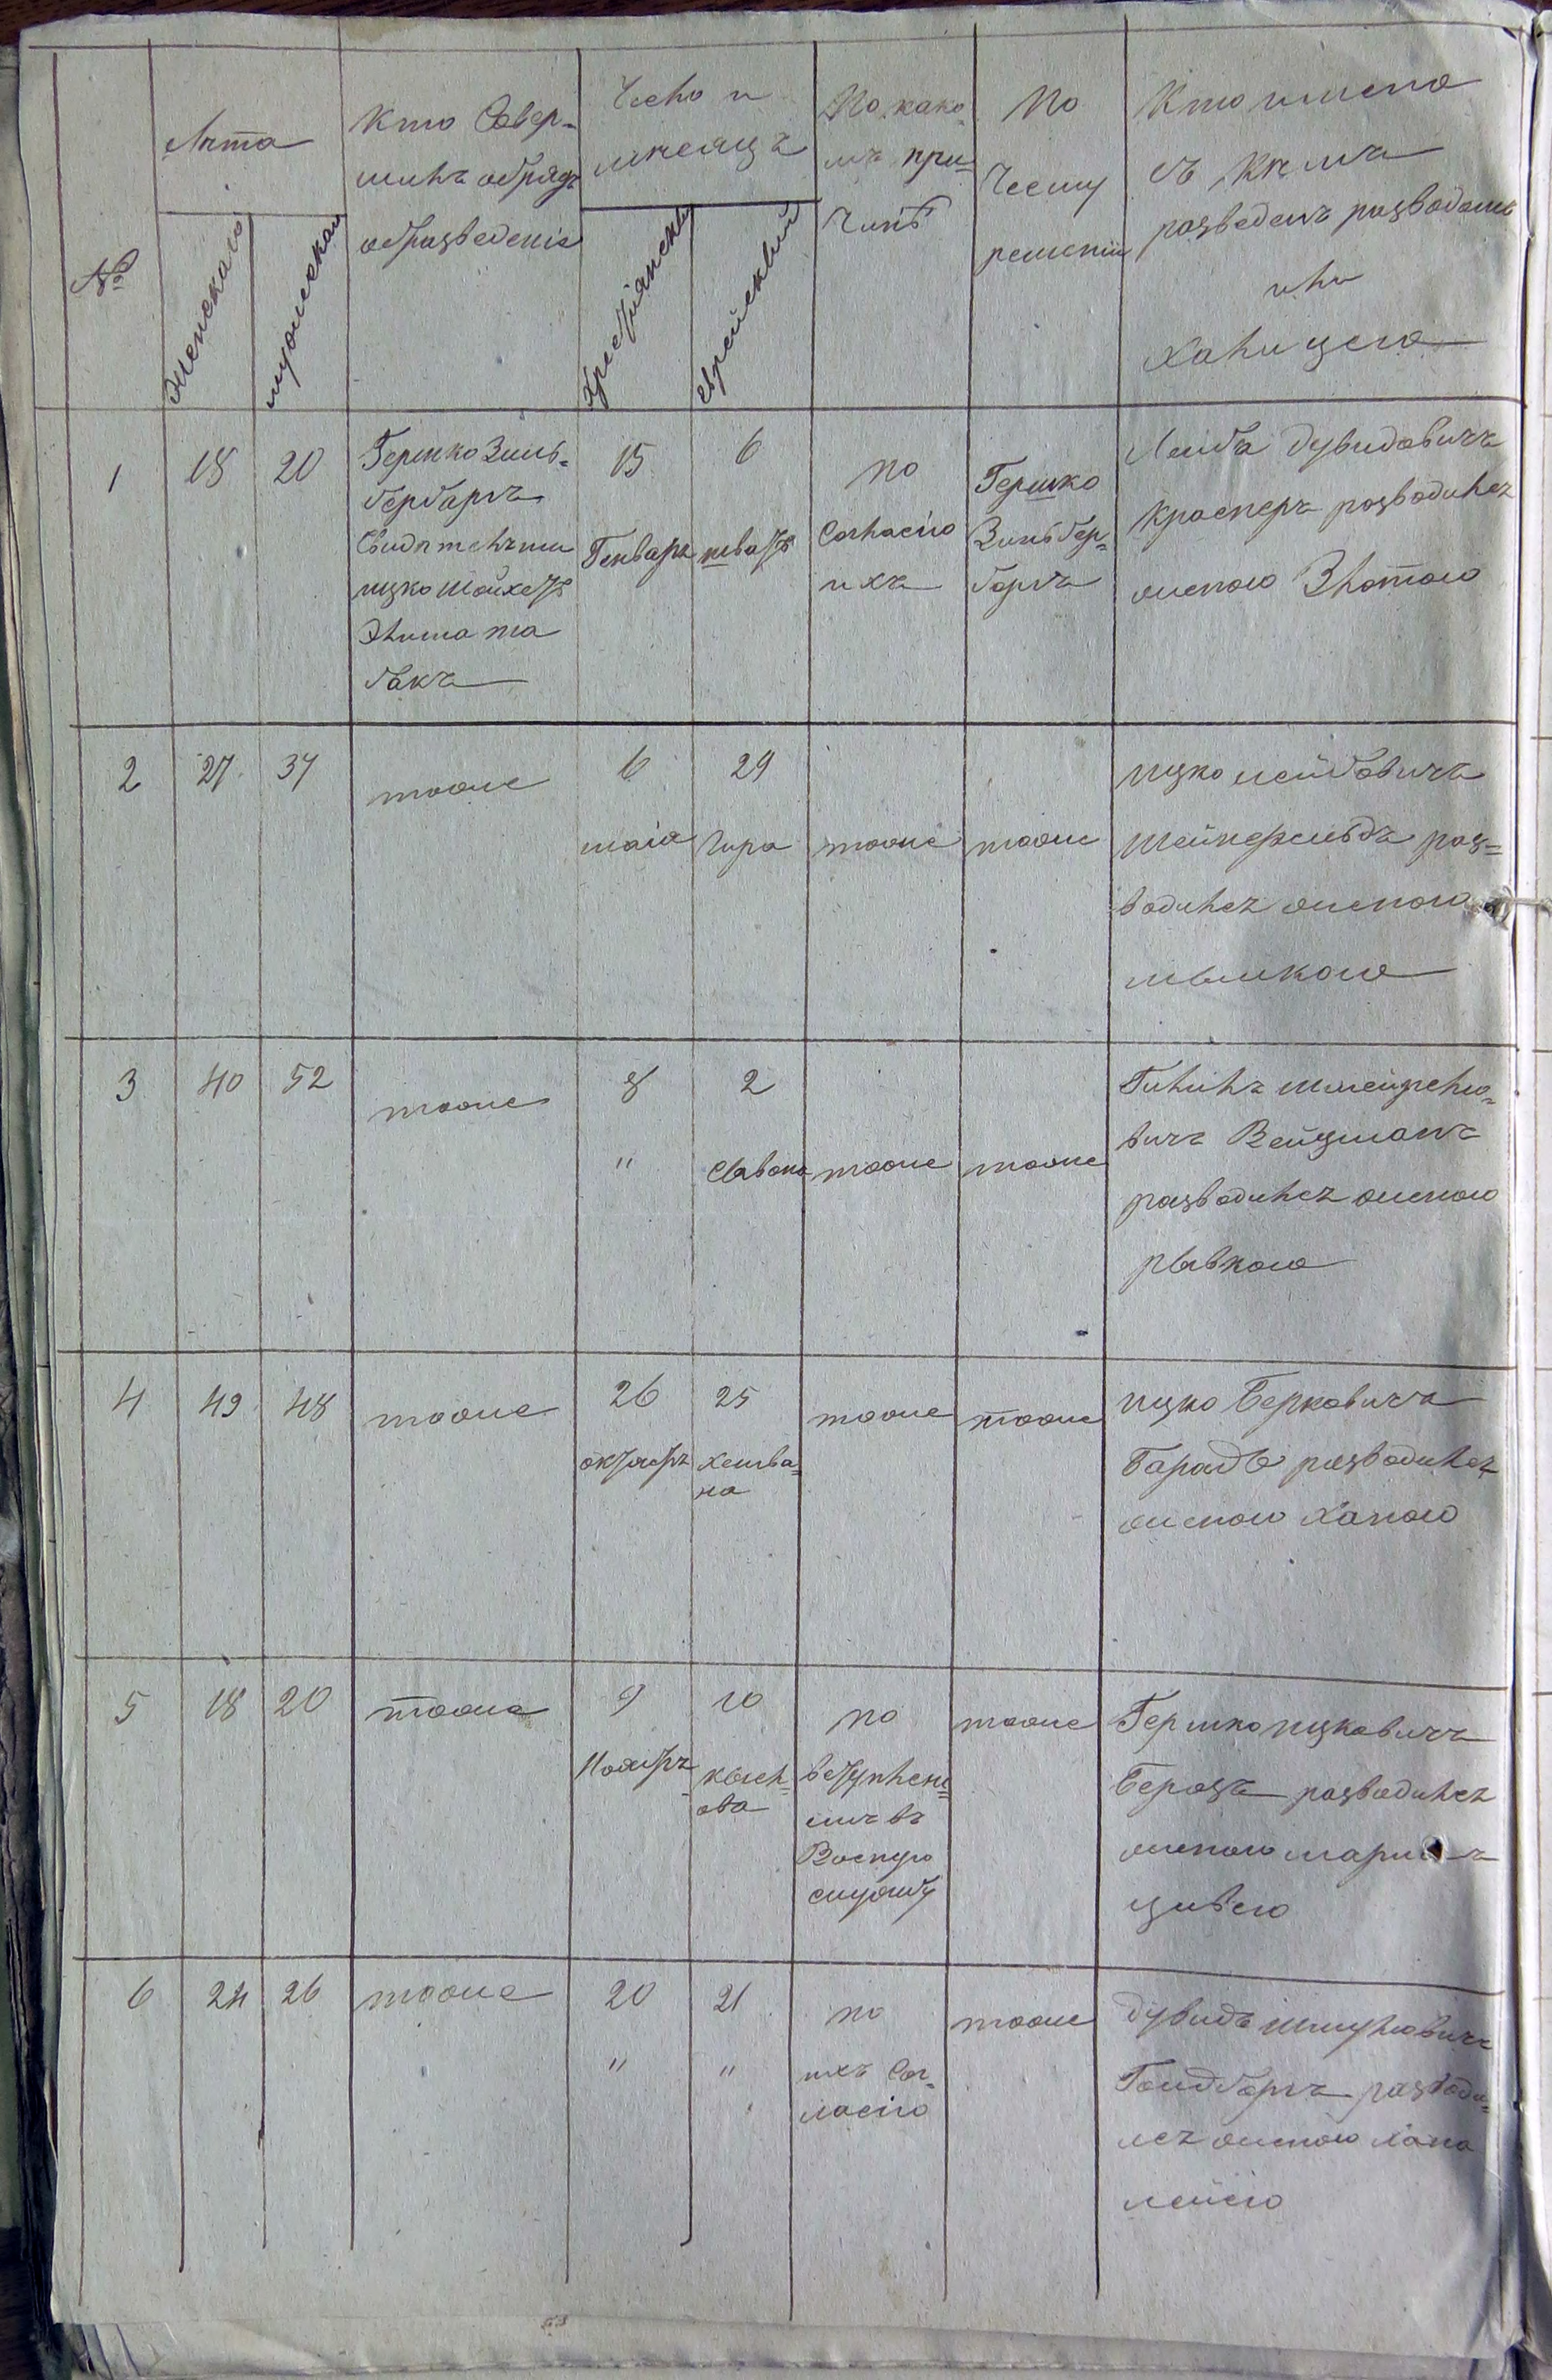 №
Лѣта
женскаго
мужескаго
Кто Совер-
шилъ обрядъ
образведенія
Число и
мѣсяцъ
Христіянский
Еврейский
По како
мъ при-
чинѣ
По
чьему
решенію
Кто имено
съ кѣмъ
разведенъ разводомъ
или
халицею
1
18
20
Гершко Зиль-
бербаргъ
Свидѣтельми
ицко Шойхетъ
Элима та
бакъ
15
Генваръ
6
шватъ
по
Согласію
ихъ
Гершко
Зильбер-
баргъ
Лейба Дувидовичъ
Краснеръ разводилсъ
женою Злотою
2
27
37
тоже
6
маія
29
Іира
тоже
тоже
ицко лейбовичъ
Шейнфельдъ раз-
водилсъ женою
малкою
3
40
52
тоже
8
"
2
Сывона
тоже
тоже
Гилилъ шмейрелю-
вичъ Вейцманъ
разводилсъ женою
рывкою
4
49
48
тоже
26
октябръ
25
хешва-
на
тоже
тоже
ицко Берковичъ
Гарадъ разводилсъ
женою Ханою
5
18
20
тоже
9
Ноябръ
10
кысл-
ова
по
вступлені-
емъ въ
Воєную
службу
тоже
Гершко ицковичъ
Берозъ разводилсъ
женою
цивею
6
24
26
тоже
20
"
21
"
по
ихъ Сог-
ласію
тоже
Дувидъ шмулювичъ
Гольдбаргъ разводи-
лсъ женою хана
лейею